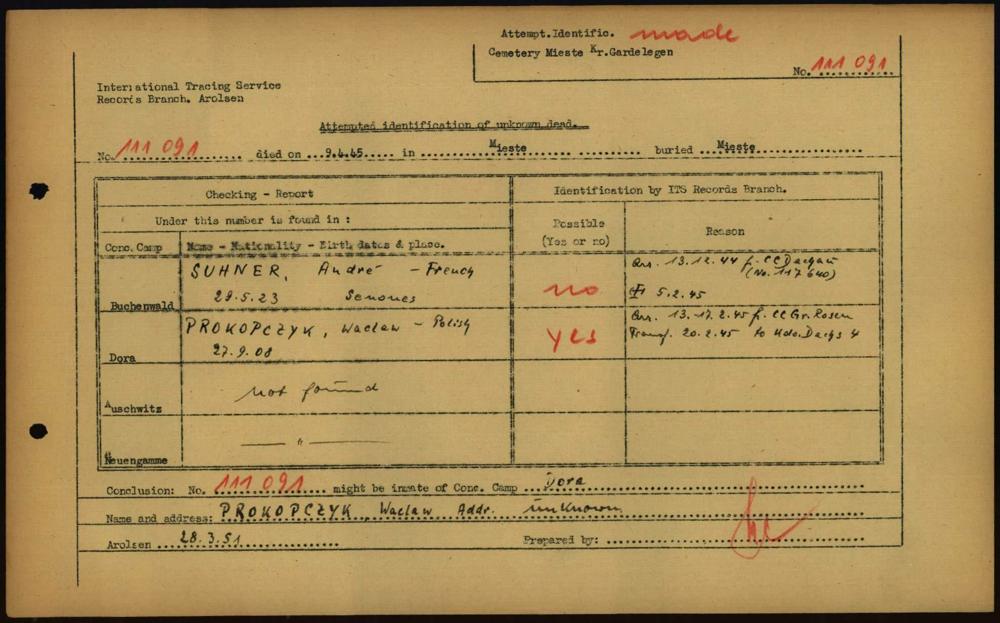 Attempt.Identific. made
Cemetery Mieste Kr.Gardelegen
No. 111 091
International Tracing Service
Records Branch. Arolsen
Attempted identification of unknown dead.
No. 111 091 died on 9.4.45 in Mieste buried Mieste
Checking - Report
Identification by ITS Records Branch.
Under this number is found in :
Possible
(Yes or no)
Reason
Conc. Camp
Name - Nationality - Birth dates & place.
Buchenwald
SUHNER, André - French
29.5.23 Senones
no
Arr. 13.12.44 f. CC Dachau
(No. 117 640)
5.2.45
Dora
PROKOPCZYK, Waclaw - Polish
27.9.08
yes
Arr. 13.-17.2.45 f. CC Gr. Rosen
Transf. 20.2.45 to Kdo. Dachs 4
Auschwitz
not found
Neuengamme
— " —
Conclusion: No. 111 091 might be inmate of Conc. Camp Dora
Name and address: PROKOPCZYK, Waclaw Addr. unknown
Arolsen 28.3.51 Prepared by: